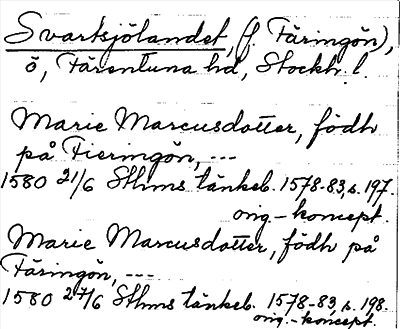 Svartsjölandet, (f. Färingön),
ö, Färentuna hd, Stockh. l.
Marie Marcusdotter, födh
på Fieringön, ---
1580 21/6 Sthms tänkeb. 1578-83, s. 197.
orig.-koncept.
Marie Marcusdotter, födh på
Färingön, ---
1580 27/6 Sthms tänkeb. 1578-83, s. 198.
orig.-koncept.